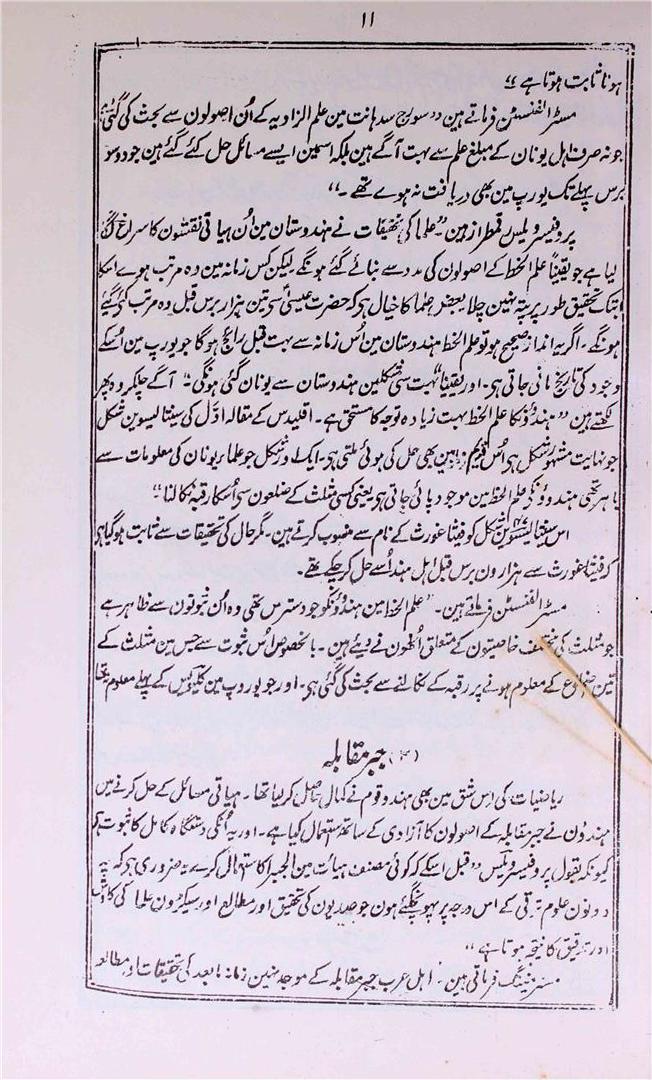 ۱۱
ہونا ثابت ہوتا ہے ‘‘
مسٹر الفنسٹن فرماتے ہین ’’سورج سدھانت مین علم الزاویہ کے اُن اصولون سے بحث کی گئی ہے
جو نہ صرف اہل یونان کے مبلغ علم سے بہت آگے ہین بلکہ اسمین ایسے مسائل حل کئے گئے ہین جو دو سو
برس پہلے تک یورپ مین بھی دریافت نہ ہوے تھے ۔‘‘
پروفیسر ویلس رقمطراز ہین ’’علما کی تحقیقات نے ہندوستان مین اُن ہیاتی نقشون کا سراغ لگا
لیا ہے جو یقیناً علم الخط کے اصولون کی مدد سے بنائے گئے ہونگے لیکن کس زمانہ مین وہ مرتب ہوے اسکا
ابتک تحقیق طور پر پتہ نہین چلا بعض علما کا خیال ہی کہ حضرت عیسیٰ سی تین ہزار برس قبل وہ مرتب کئی گئے
ہونگے ۔ اگر یہ انداز صحیح ہو تو علم الخط ہندوستان مین اُس زمانہ سے بہت قبل رائج ہوگا جو یورپ مین اُسکے
وجود کی تاریخ مانی جاتی ہی ۔ اور یقیناً بہت سی شکلین ہندوستان سے یونان گئی ہونگی ‘‘ آگے چلکر وہ پھر
لکھتے ہین ’’ہندوؤنکا علم الخط بہت زیادہ توجہ کا مستحق ہے ۔ اقلیدس کے مقالہ اوّل کی سینتالیسوین شکل
جو نہایت مشہور شکل ہی اُس قدیم زمانہ مین بھی حل کی ہوئی ملتی ہی ۔ ایک اور شکل جو علماء یونان کی معلومات سے
باہر تھی ہندوؤنکی علم الخط مین موجود پائی جاتی ہی یعنی کسی مثلث کے ضلعون سی اُسکا رقبہ نکالنا ‘‘
اس سینتالیسوین ۴۷ شکل کو فیثاغورث کے نام سے منسوب کرتے ہین ۔ مگر حال کی تحقیقات سے ثابت ہوگیا ہی
کہ فیثاغورث سے ہزارون برس قبل اہل ہند اُسے حل کرچکے تھے ۔
مسٹر الفنسٹن فرماتے ہین ۔ ’’علم الخط مین ہندوؤنکو جو دسترس تھی وہ اُن ثبوتون سے ظاہر ہے
جو مثلث کی مختلف خاصیتون کے متعلق اُنھون نے دیئے ہین ۔ بالخصوص اُس ثبوت سے جس مین مثلث کے
تین اضلاع کے معلوم ہونے پر رقبہ کے نکالنے سے بحث کی گئی ہی ۔ اور جو یوروپ مین کلیویس کے پہلے معلوم نتھا
(۳) جبر مقابلہ
ریاضیات کی اِس شق مین بھی ہندو قوم نے کمال حاصل کرلیا تھا ۔ ہیاتی مسائل کے حل کرنے مین
ہندوُن نے جبر مقابلہ کے اصولون کا آزادی کے ساتھ استعمال کیا ہے ۔ اور یہ اُنکی دستگاہ کامل کا ثبوت ہی
کیونکہ بقول پروفیسر ویلس ’’قبل اسکے کہ کوئی مصنف ہیأت مین الجبرا کا استعمال کرے یہ ضروری ہی کہ یہ
دونون علوم ترقی کے اس درجہ پر پہونچگئے ہون جو صدیون کی تحقیق اور مطالع اور سیکڑون علما کی کاوش
اور تدقیق کا نتیجہ ہوتا ہے ‘‘
مسز میننگ فرماتی ہین ۔ اہل عرب جبر مقابلہ کے موجد نہین زمانہ مابعد کی تحقیقات اور مطالعہ